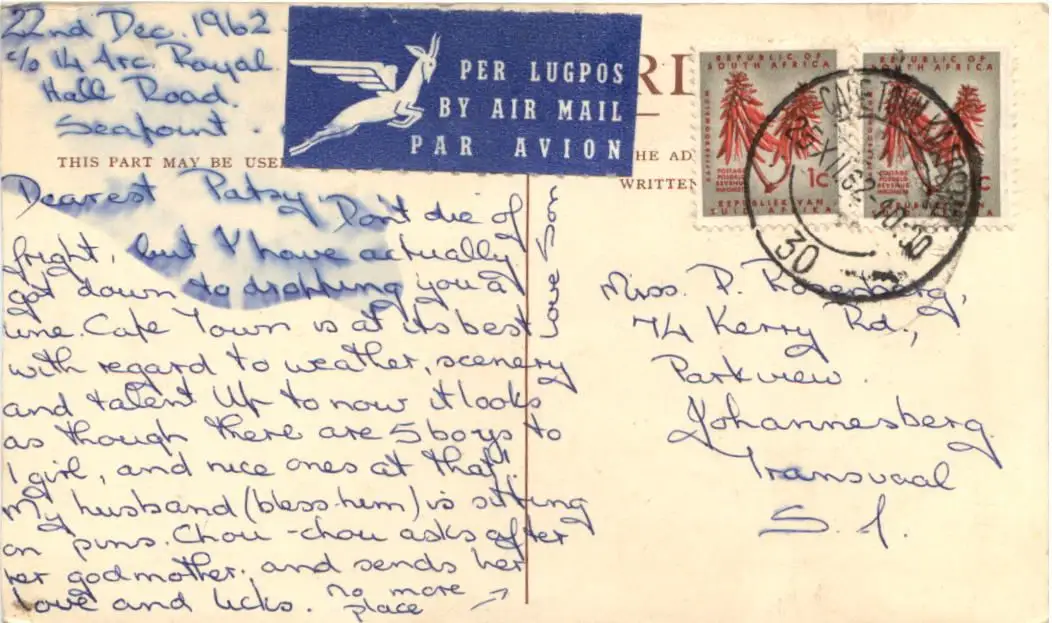 22nd Dec. 1962
c/o 14 Arc. Royal.
Hall Road.
Seapoint.
PER LUGPOS
BY AIR MAIL
PAR AVION
THIS PART MAY BE USE
HE AD
WRITTEN
Dearest Patsy, Don't die of
fright, but I have actually
got down to dropping you a
line. Cape Town is at its best
with regard to weather, scenery
and talent Up to now it looks
as though there are 5 boys to
1 girl, and nice ones at that!
My husband (bless-him) is sitting
on pins. Chou-chou asks after
her godmother, and sends her
love and licks. no more
place
love
REPUBLIC OF
SOUTH AFRICA
POSTAGE
REVENUE
1c
REPUBLIEK VAN
SUID-AFRIKA
REPUBLIC OF
SOUTH AFRICA
POSTAGE
REVENUE
c
CAPE TOWN KAAPSTAD
XII 62
30
Miss. P. Rosenberg,
74 Kerry Rd,
Parkview.
Johannesberg.
Transvaal